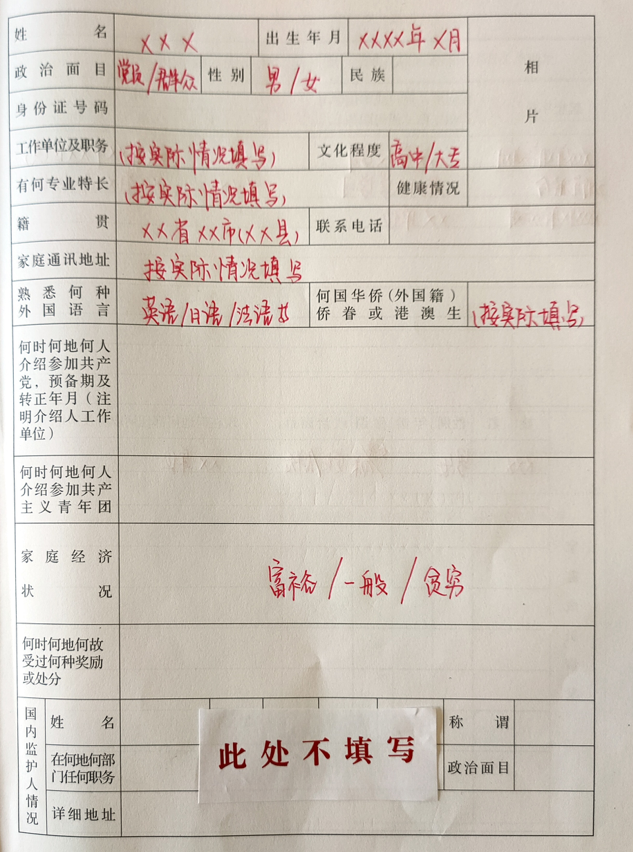 姓名 xxx 出生年月 xxxx年x月
相片
政治面目 党员/群众 性别 男/女 民族
身份证号码
工作单位及职务 (按实际情况填写) 文化程度 高中/大专
有何专业特长 (按实际情况填写) 健康情况
籍贯 xx省xx市(xx县) 联系电话
家庭通讯地址 按实际情况填写
熟悉何种 英语/日语/法语 何国华侨(外国籍) (按实际填写)
外国语言 侨眷或港澳生
何时何地何人
介绍参加共产
党，预备期及
转正年月（注
明介绍人工作
单位）
何时何地何人
介绍参加共产
主义青年团
家庭经济 富裕/一般/贫穷
状况
何时何地何故
受过何种奖励
或处分
国内监护人情况
姓名 称谓
此处不填写
在何地何部 政治面目
门任何职务
详细地址